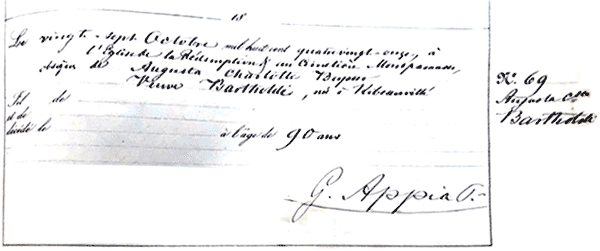 18
Le vingt-sept Octobre mil huit cent quatre vingt-onze, à
l'Eglise de la Rédemption & au Cimetière Montparnasse,
obsèques de Augusta Charlotte Beysser
Veuve Bartholdi, née à Ribeauvillé
Fil de
et de
décédé le à l'âge de 90 ans
G. Appia P.
N. 69
Augusta Ctte
Bartholdi